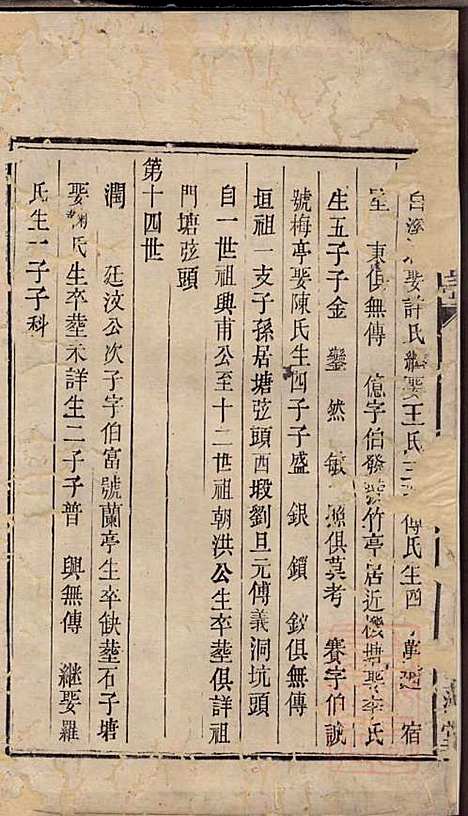 娶許氏繼娶王氏三子 傳氏生四子 宿
室 東俱無傳 億字伯發號竹亭居近機塘娶李氏
生五子子金 鑾 然 敏 俱莫考 賽字伯誠
號梅亭娶陳氏生四子子盛 銀 鎖 釵俱無傳
垣祖一支子孫居塘弦頭西塅劉旦元傳義洞坑頭
自一世祖興甫公至十二世祖朝洪公生卒塟俱詳祖
門塘弦頭
第十四世
潤 廷汶公次子字伯富號蘭亭生卒缺塟石子塘
娶 氏生卒塟未詳生二子子普 興無傳 繼娶羅
氏生一子子科